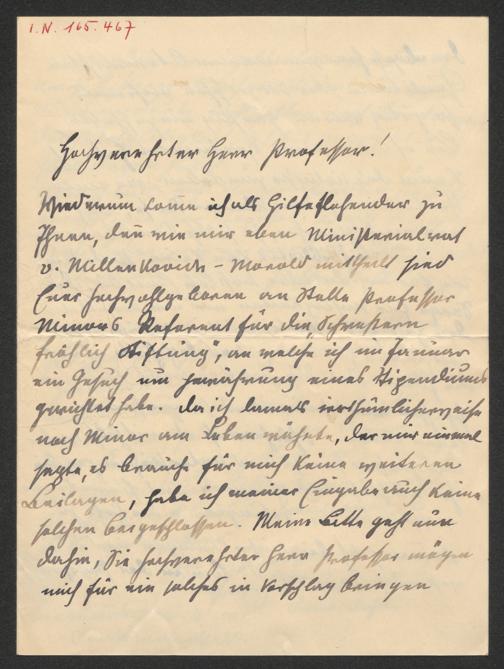 I.N. 165.467
Hochverehrter Herr Professor!
Wiederum komme ich als Hilfeflehender zu
Ihnen, denn wie mir eben Ministerialrat
v. Millenkovich-Morold mittheilt sind
Euer Hochwohlgeboren an Stelle Professor
Minors Referent für die „Schwestern
fröhlich Stiftung", an welche ich im Januar
ein Gesuch um Gewährung eines Stipendiums
gerichtet habe. Da ich damals irrthümlicherweise
noch Minor am Leben wähnte, der mir einmal
sagte, es brauche für mich keine weiteren
Beilagen, habe ich meiner Eingabe auch keine
solchen beigeschlossen. Meine Bitte geht nun
dahin, Sie hochverehrter Herr Professor mögen
mich für ein solches in Vorschlag bringen